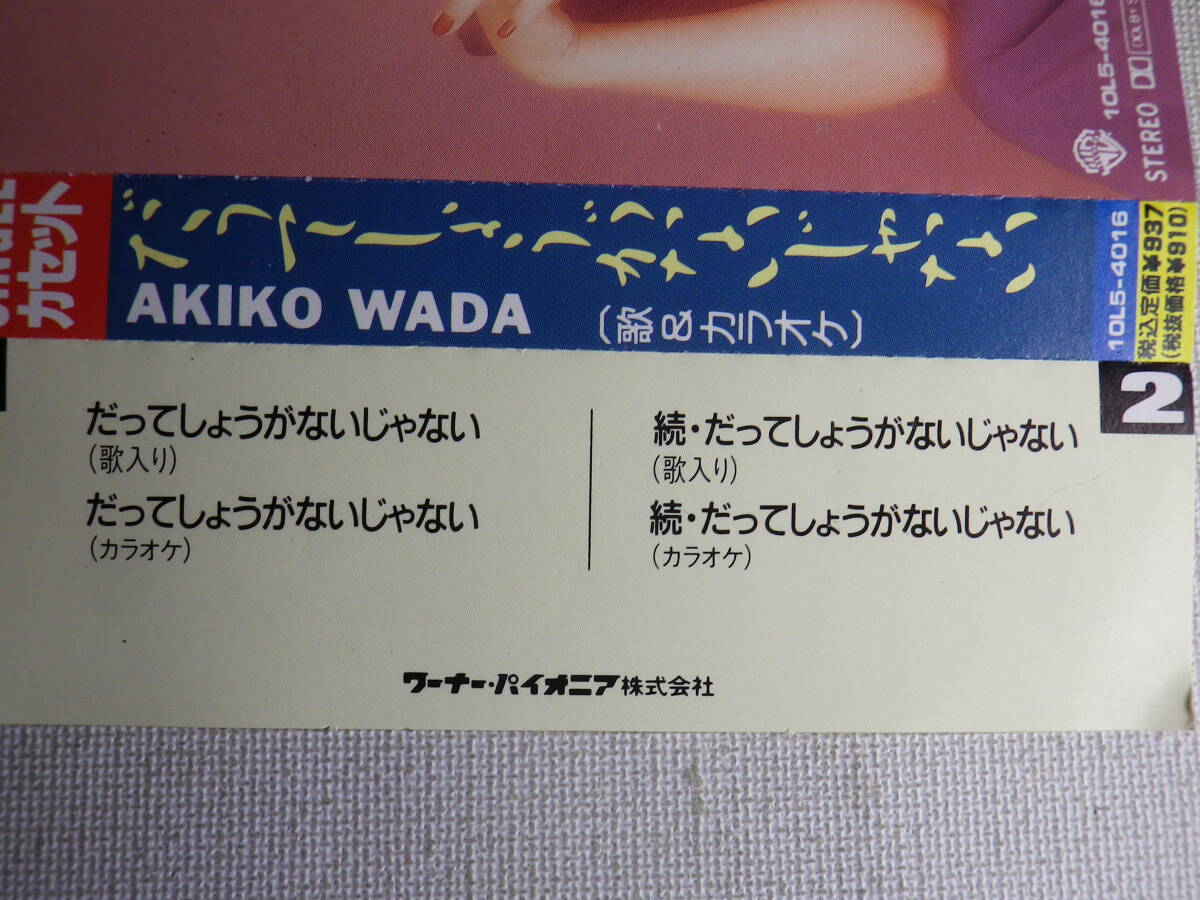 10L5-4016
STEREO
カセット
だってしょうがないじゃない
AKIKO WADA
〔歌&カラオケ〕
10L5-4016
税込定価¥937
(税抜価格¥910)
2
だってしょうがないじゃない
(歌入り)
だってしょうがないじゃない
(カラオケ)
続・だってしょうがないじゃない
(歌入り)
続・だってしょうがないじゃない
(カラオケ)
ワーナー・パイオニア株式会社